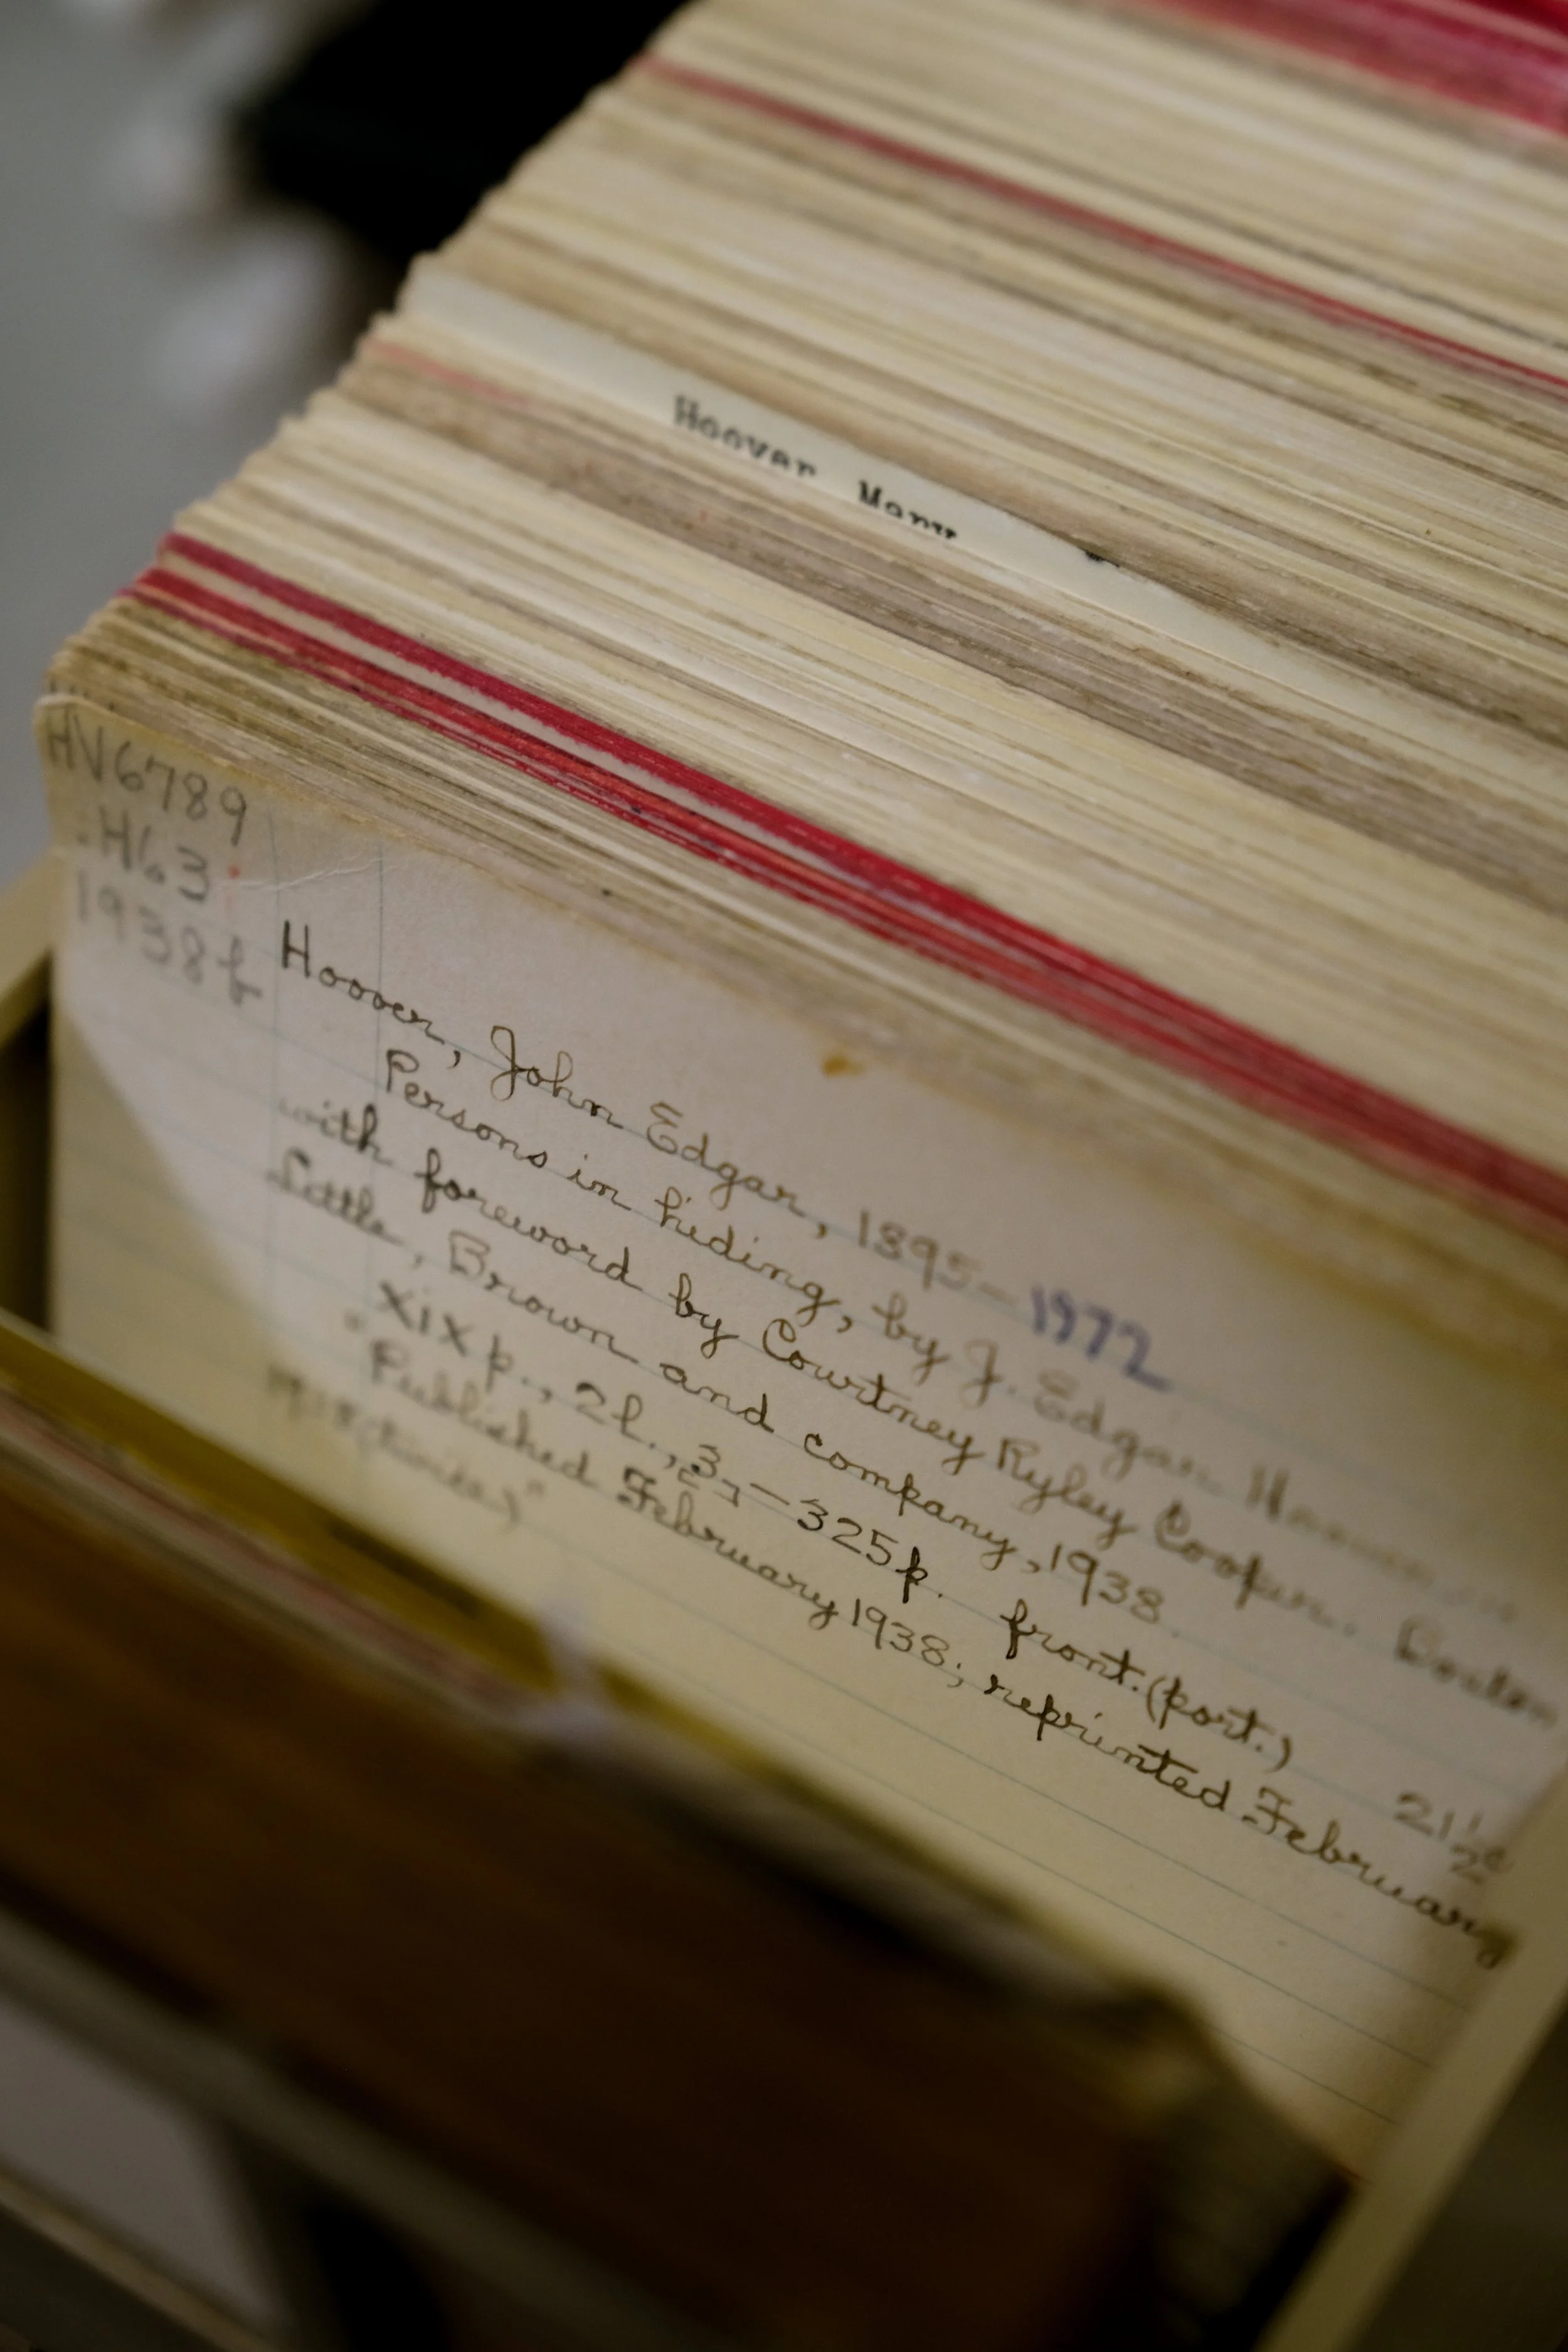 Hoover Mary
HV6789
.H63
1938b
Hoover, John Edgar, 1895-1972
Persons in hiding, by J. Edgar Hoover
with foreword by Courtney Ryley Cooper. Boston
Little, Brown and company, 1938.
xix p., 2 l., [3]-325 p. front. (port.) 21½c
"Published February 1938; reprinted February
1938 (twice)"